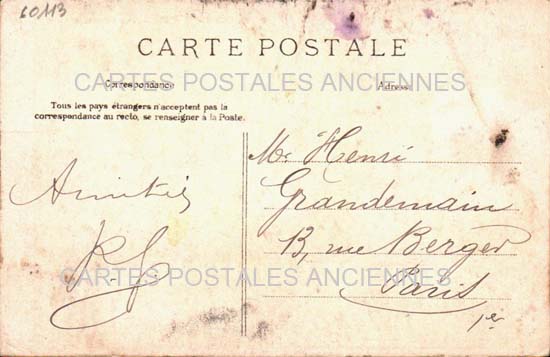 60113
CARTE POSTALE
CARTES POSTALES ANCIENNES
Correspondance
Adresse
Tous les pays étrangers n'acceptent pas la
correspondance au recto, se renseigner à la Poste.
Mr Henri
Grandemain
13, rue Berger
Paris
1er
Amitiés
CARTES POSTALES ANCIENNES